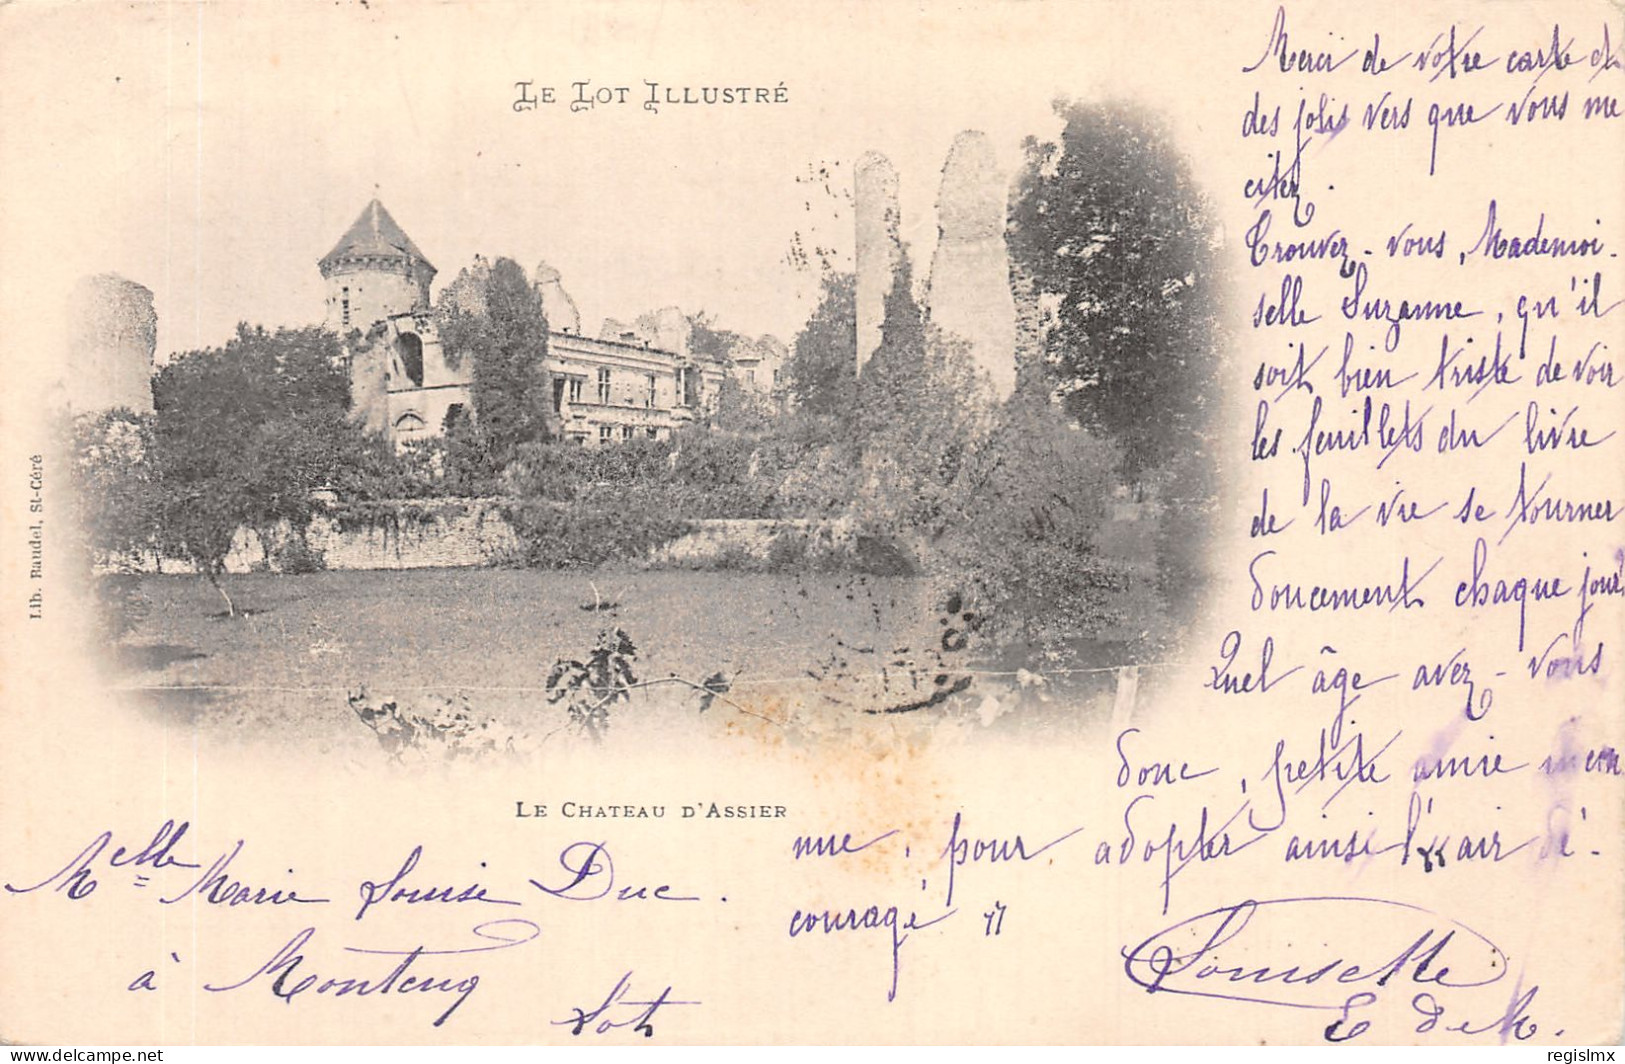 LE LOT ILLUSTRÉ
Lib. Baudel, St-Céré
LE CHATEAU D'ASSIER
Merci de votre carte et
des jolis vers que vous me
citez.
Trouvez-vous, Mademoi-
selle Suzanne, qu'il
soit bien triste de voir
les feuillets du livre
de la vie se tourner
doucement chaque jour?
Quel âge avez-vous
donc, petite amie incon
nue, pour adopter ainsi l'air dé-
couragé "
Louisette
E de M.
Melle Marie Louise Duc.
à Montcuq
Lot
delcampe.net
regislmx